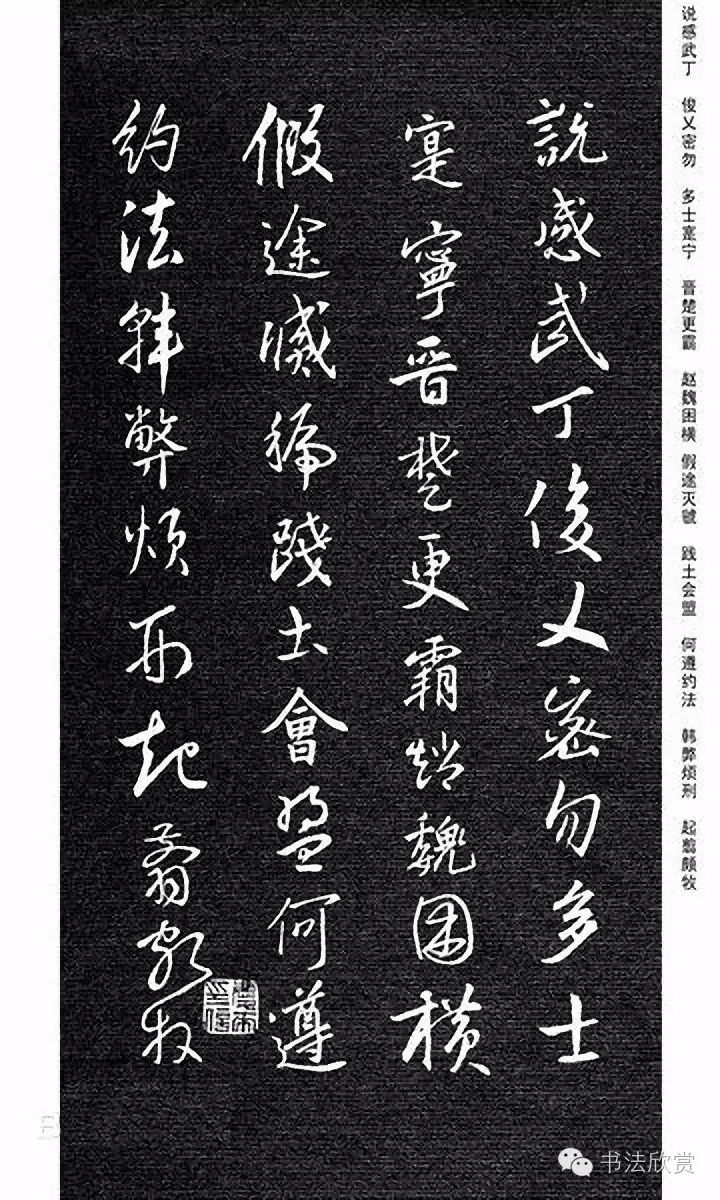 说感武丁 俊乂密勿 多士寔宁 晋楚更霸 赵魏困横 假途灭虢 践土会盟 何遵约法 韩弊烦刑 起翦颇牧
說感武丁俊乂密勿多士
寔寧晋楚更霸趙魏困橫
假途滅虢踐土會盟何遵
約法韓弊煩刑起翦頗牧
书法欣赏